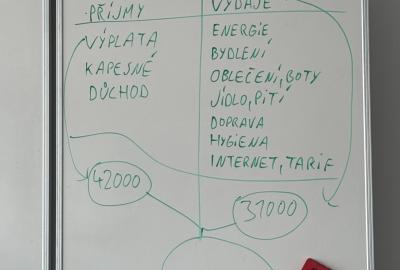 PŘÍJMY
VÝPLATA
KAPESNÉ
DŮCHOD
42000
VÝDAJE
ENERGIE
BYDLENÍ
OBLEČENÍ, BOTY
JÍDLO, PITÍ
DOPRAVA
HYGIENA
INTERNET, TARIF
31000